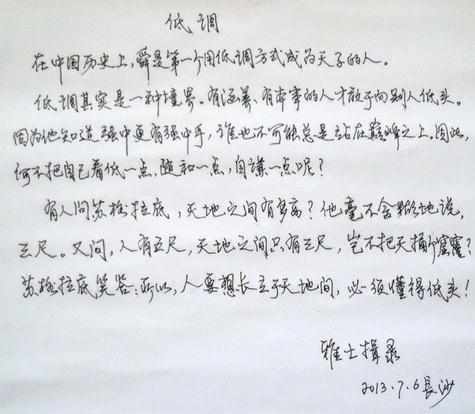 低调
在中国历史上,舜是第一个用低调方式成为天子的人。
低调其实是一种境界。有涵养、有本事的人才敢于向别人低头。
因为他知道强中更有强中手,谁也不可能总是站在巅峰之上。因此,
何不把自己看低一点,随和一点,自谦一点呢?
有人问苏格拉底,天地之间有多高?他毫不含糊地说,
三尺。又问,人有五尺,天地之间只有三尺,岂不把天捅个窟窿?
苏格拉底笑答:所以,人要想长立于天地间,必须懂得低头!
雅士揖录
2013.7.6 长沙